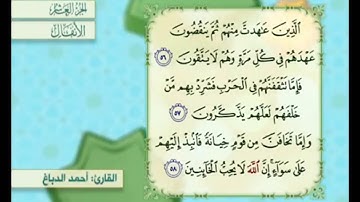 الجزء العاشر
الأنفال
الَّذِينَ عَاهَدتَّ مِنْهُمْ ثُمَّ يَنقُضُونَ
عَهْدَهُمْ فِي كُلِّ مَرَّةٍ وَهُمْ لَا يَتَّقُونَ ٥٦
فَإِمَّا تَثْقَفَنَّهُمْ فِي الْحَرْبِ فَشَرِّدْ بِهِم مَّنْ
خَلْفَهُمْ لَعَلَّهُمْ يَذَّكَّرُونَ ٥٧
وَإِمَّا تَخَافَنَّ مِن قَوْمٍ خِيَانَةً فَانبِذْ إِلَيْهِمْ
عَلَىٰ سَوَاءٍ إِنَّ اللَّهَ لَا يُحِبُّ الْخَائِنِينَ ٥٨
القارئ: أحمد الدباغ